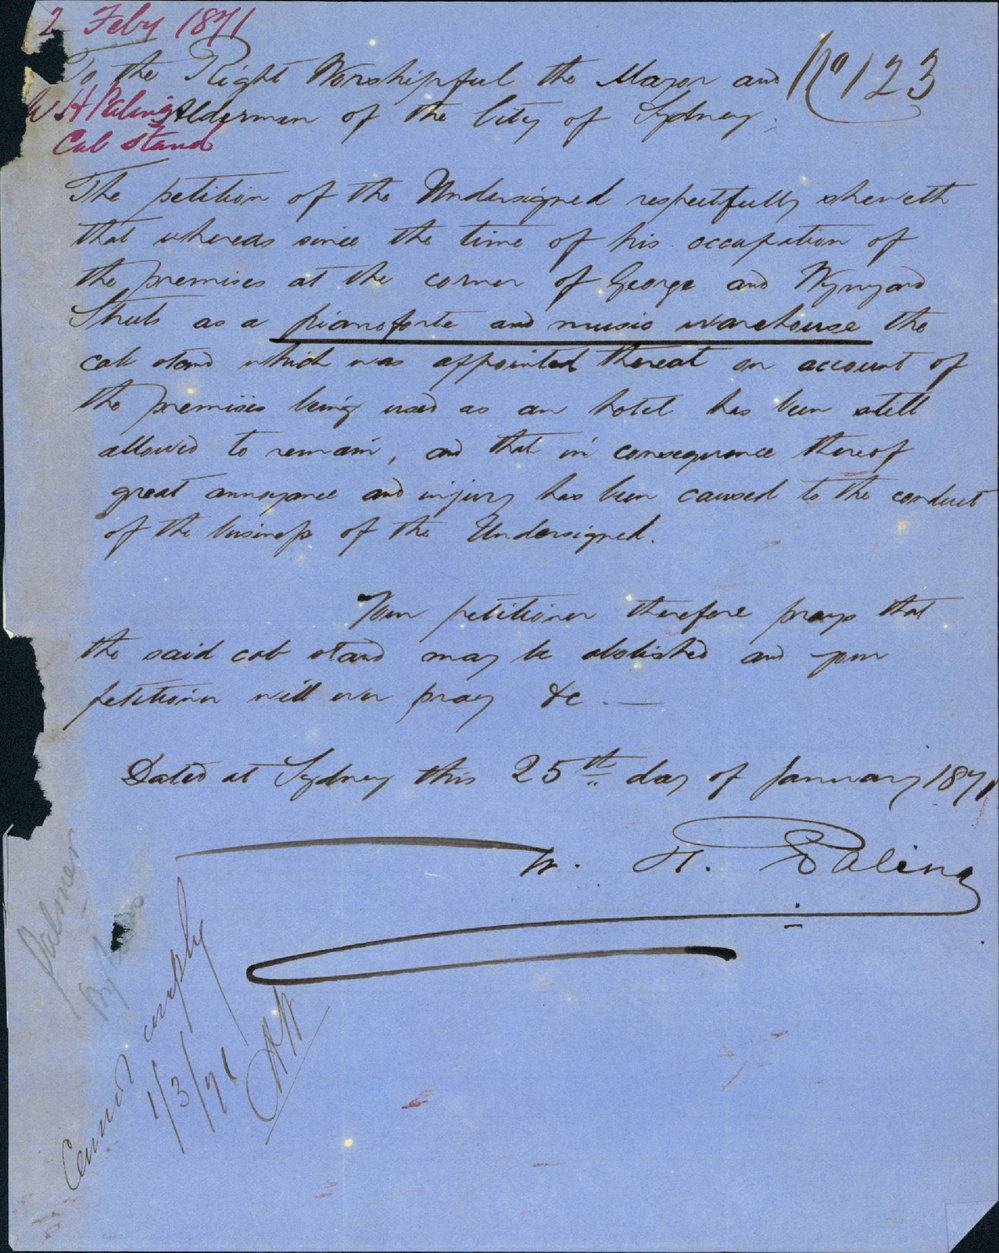 2 Feby 1871
To the Right Worshipful the Mayor and
No 123
W H Paling
Aldermen of the City of Sydney;
Cab Stand
The petition of the Undersigned respectfully sheweth
that whereas since the time of his occupation of
the premises at the corner of George and Wynyard
Streets as a pianoforte and music warehouse the
cab stand which was appointed thereat on account of
the premises being used as an hotel has been still
allowed to remain, and that in consequence thereof
great annoyance and injury has been caused to the conduct
of the business of the Undersigned.
Your petitioner therefore prays that
the said cab stand may be abolished and your
petitioner will ever pray &c. —
Dated at Sydney this 25th day of January 1871
W. H. Paling
Palmer
Cannot comply
1/3/71